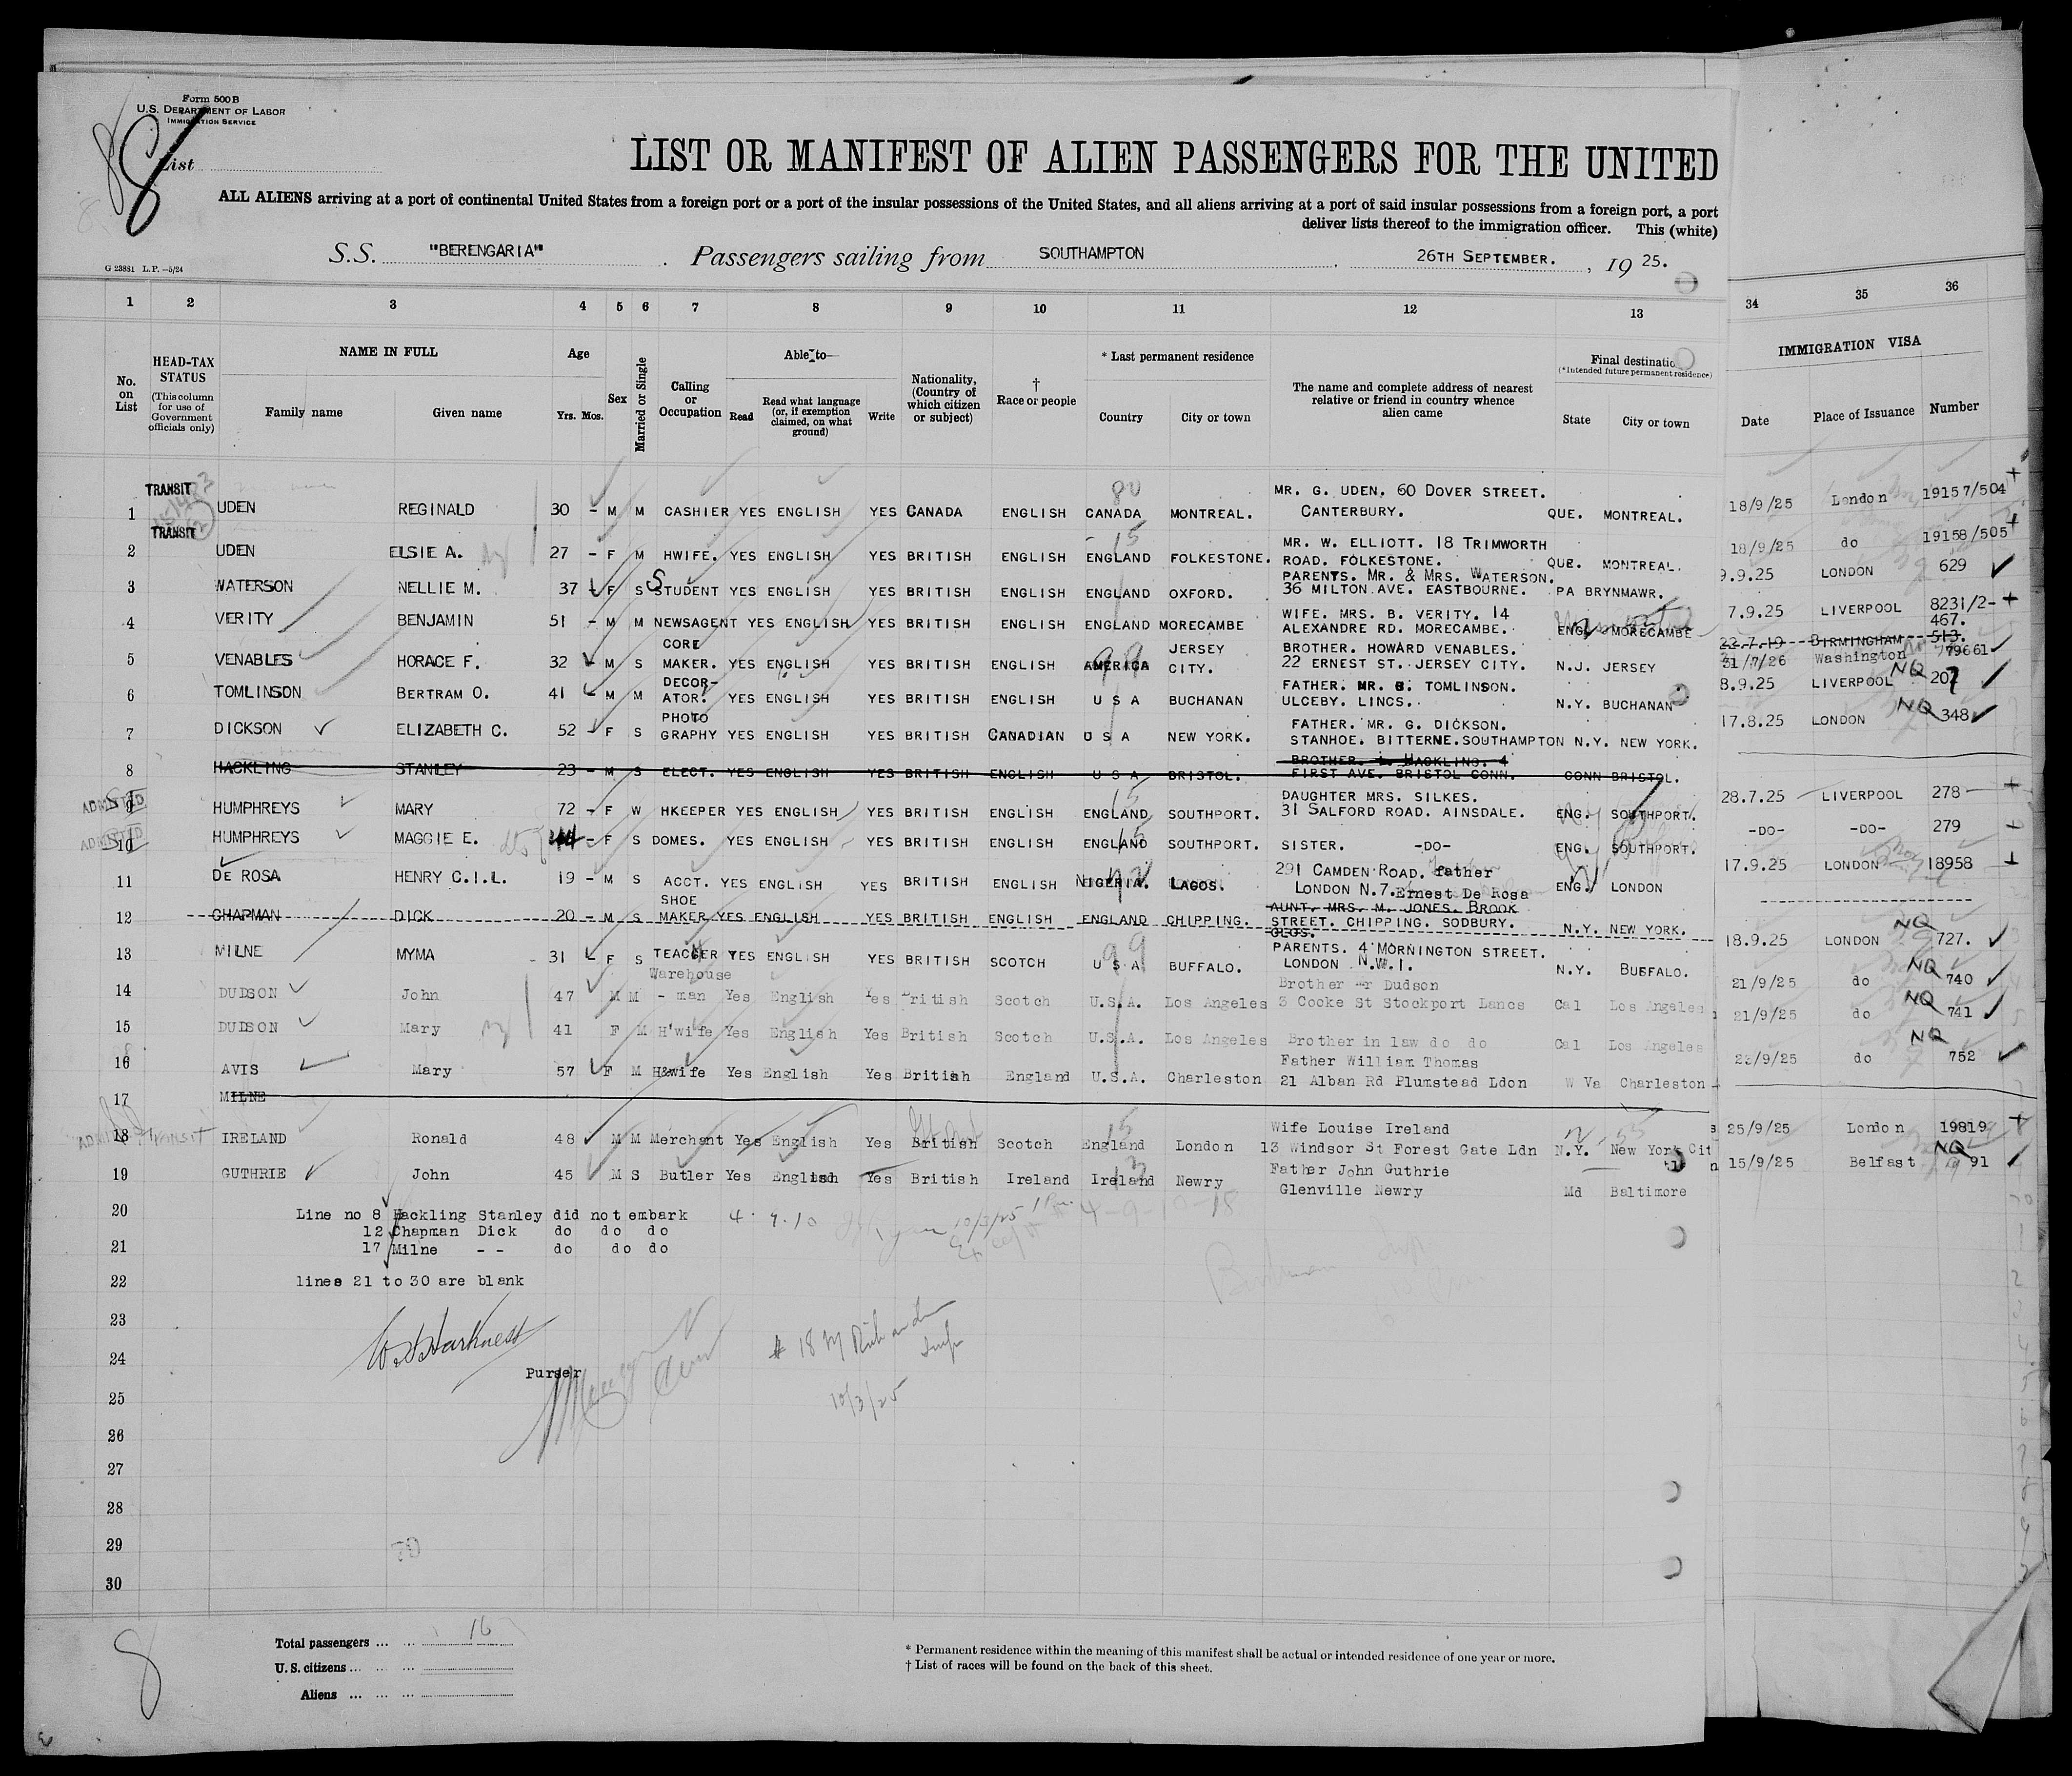 Form 500 B
U.S. DEPARTMENT OF LABOR
IMMIGRATION SERVICE
List
8
LIST OR MANIFEST OF ALIEN PASSENGERS FOR THE UNITED
ALL ALIENS arriving at a port of continental United States from a foreign port or a port of the insular possessions of the United States, and all aliens arriving at a port of said insular possessions from a foreign port, a port
deliver lists thereof to the immigration officer. This (white)
S.S. "BERENGARIA" . Passengers sailing from SOUTHAMPTON . 26TH SEPTEMBER. , 19 25.
G 23881 L.P.—5/24
1 2 3 4 5 6 7 8 9 10 11 12 13 34 35 36
No. on List
HEAD-TAX STATUS (This column for use of Government officials only)
NAME IN FULL
Family name Given name
Age
Yrs. Mos.
Sex
Married or Single
Calling or Occupation
Able to—
Read Read what language (or, if exemption claimed, on what ground) Write
Nationality, (Country of which citizen or subject)
† Race or people
* Last permanent residence
Country City or town
The name and complete address of nearest relative or friend in country whence alien came
Final destination
(*Intended future permanent residence)
State City or town
IMMIGRATION VISA
Date Place of Issuance Number
TRANSIT
1 UDEN REGINALD 30 - M M CASHIER YES ENGLISH YES CANADA ENGLISH CANADA MONTREAL. MR. G. UDEN. 60 DOVER STREET. CANTERBURY. QUE. MONTREAL. 18/9/25 London 19157/504 +
TRANSIT
2 UDEN ELSIE A. 27 - F M HWIFE. YES ENGLISH YES BRITISH ENGLISH ENGLAND FOLKESTONE. MR. W. ELLIOTT. 18 TRIMWORTH ROAD. FOLKESTONE. QUE. MONTREAL. 18/9/25 do 19158/505 +
3 WATERSON NELLIE M. 37 - F S STUDENT YES ENGLISH YES BRITISH ENGLISH ENGLAND OXFORD. PARENTS. MR. & MRS. WATERSON. 36 MILTON AVE. EASTBOURNE. PA BRYNMAWR. 9.9.25 LONDON 629
4 VERITY BENJAMIN 51 - M M NEWSAGENT YES ENGLISH YES BRITISH ENGLISH ENGLAND MORECAMBE WIFE. MRS. B. VERITY. 14 ALEXANDRE RD. MORECAMBE. ENG. MORECAMBE 7.9.25 LIVERPOOL 8231/2- 467. +
5 VENABLES HORACE F. 32 - M S CORE MAKER. YES ENGLISH YES BRITISH ENGLISH AMERICA JERSEY CITY. BROTHER. HOWARD VENABLES. 22 ERNEST ST. JERSEY CITY. N.J. JERSEY 22.7.19 BIRMINGHAM 513. 31/7/26 Washington 79661
6 TOMLINSON BERTRAM O. 41 - M M DECOR- ATOR. YES ENGLISH YES BRITISH ENGLISH U S A BUCHANAN FATHER. MR. G. TOMLINSON. ULCEBY. LINCS. N.Y. BUCHANAN 8.9.25 LIVERPOOL NQ 207
7 DICKSON ELIZABETH C. 52 - F S PHOTO GRAPHY YES ENGLISH YES BRITISH CANADIAN U S A NEW YORK. FATHER. MR. G. DICKSON. STANHOE. BITTERNE.SOUTHAMPTON N.Y. NEW YORK. 17.8.25 LONDON NQ 348
8 HACKLING STANLEY 23 - M S ELECT. YES ENGLISH YES BRITISH ENGLISH U S A BRISTOL. BROTHER. L. HACKLING. 4 FIRST AVE. BRISTOL CONN. CONN BRISTOL.
ADMITTED
9 HUMPHREYS MARY 72 - F W HKEEPER YES ENGLISH YES BRITISH ENGLISH ENGLAND SOUTHPORT. DAUGHTER MRS. SILKES. 31 SALFORD ROAD. AINSDALE. ENG. SOUTHPORT. 28.7.25 LIVERPOOL 278 +
ADMITTED
10 HUMPHREYS MAGGIE E. 44 - F S DOMES. YES ENGLISH YES BRITISH ENGLISH ENGLAND SOUTHPORT. SISTER. -DO- ENG. SOUTHPORT. -DO- -DO- 279 +
11 DE ROSA HENRY C.I.L. 19 - M S ACCT. YES ENGLISH YES BRITISH ENGLISH NIGERIA. LAGOS. 291 CAMDEN ROAD. father LONDON N.7. Ernest De Rosa ENG. LONDON 17.9.25 LONDON 18958 +
12 CHAPMAN DICK 20 - M S SHOE MAKER YES ENGLISH YES BRITISH ENGLISH ENGLAND CHIPPING. AUNT. MRS. M. JONES. BROOK STREET. CHIPPING. SODBURY. GLOS. N.Y. NEW YORK.
13 MILNE MYMA 31 - F S TEACGER YES ENGLISH YES BRITISH SCOTCH U S A BUFFALO. PARENTS. 4 MORNINGTON STREET. LONDON N.W.1. N.Y. BUFFALO. 18.9.25 LONDON NQ 727.
14 DUDSON John 47 M M Warehouse - man Yes English Yes British Scotch U.S.A. Los Angeles Brother mr Dudson 3 Cooke St Stockport Lancs Cal Los Angeles 21/9/25 do NQ 740
15 DUDSON Mary 41 F M H'wife Yes English Yes British Scotch U.S.A. Los Angeles Brother in law do do Cal Los Angeles 21/9/25 do NQ 741
16 AVIS Mary 57 F M H&wife Yes English Yes British England U.S.A. Charleston Father William Thomas 21 Alban Rd Plumstead Ldon W Va Charleston 23/9/25 do NQ 752
17 MILNE
ADMITTED TRANSIT
18 IRELAND Ronald 48 M M Merchant Yes English Yes British Scotch England London Wife Louise Ireland 13 Windsor St Forest Gate Ldn N.Y. New York Cit 25/9/25 London 19819 +
19 GUTHRIE John 45 M S Butler Yes English Yes British Ireland Ireland Newry Father John Guthrie Glenville Newry Md Baltimore 15/9/25 Belfast NQ 91
20 Line no 8 Hackling Stanley did not embark 4. 9. 10 10/3/25 4-9-10-18
12 Chapman Dick do do do
21 17 Milne - - do do do
22 lines 21 to 30 are blank
23
24 W. Harkness
Purser
# 18 M
10/3/25
25
26
27
28
29
70
30
Total passengers ... ... 16
U. S. citizens ... ... ...
Aliens ... ... ...
8
* Permanent residence within the meaning of this manifest shall be actual or intended residence of one year or more.
† List of races will be found on the back of this sheet.